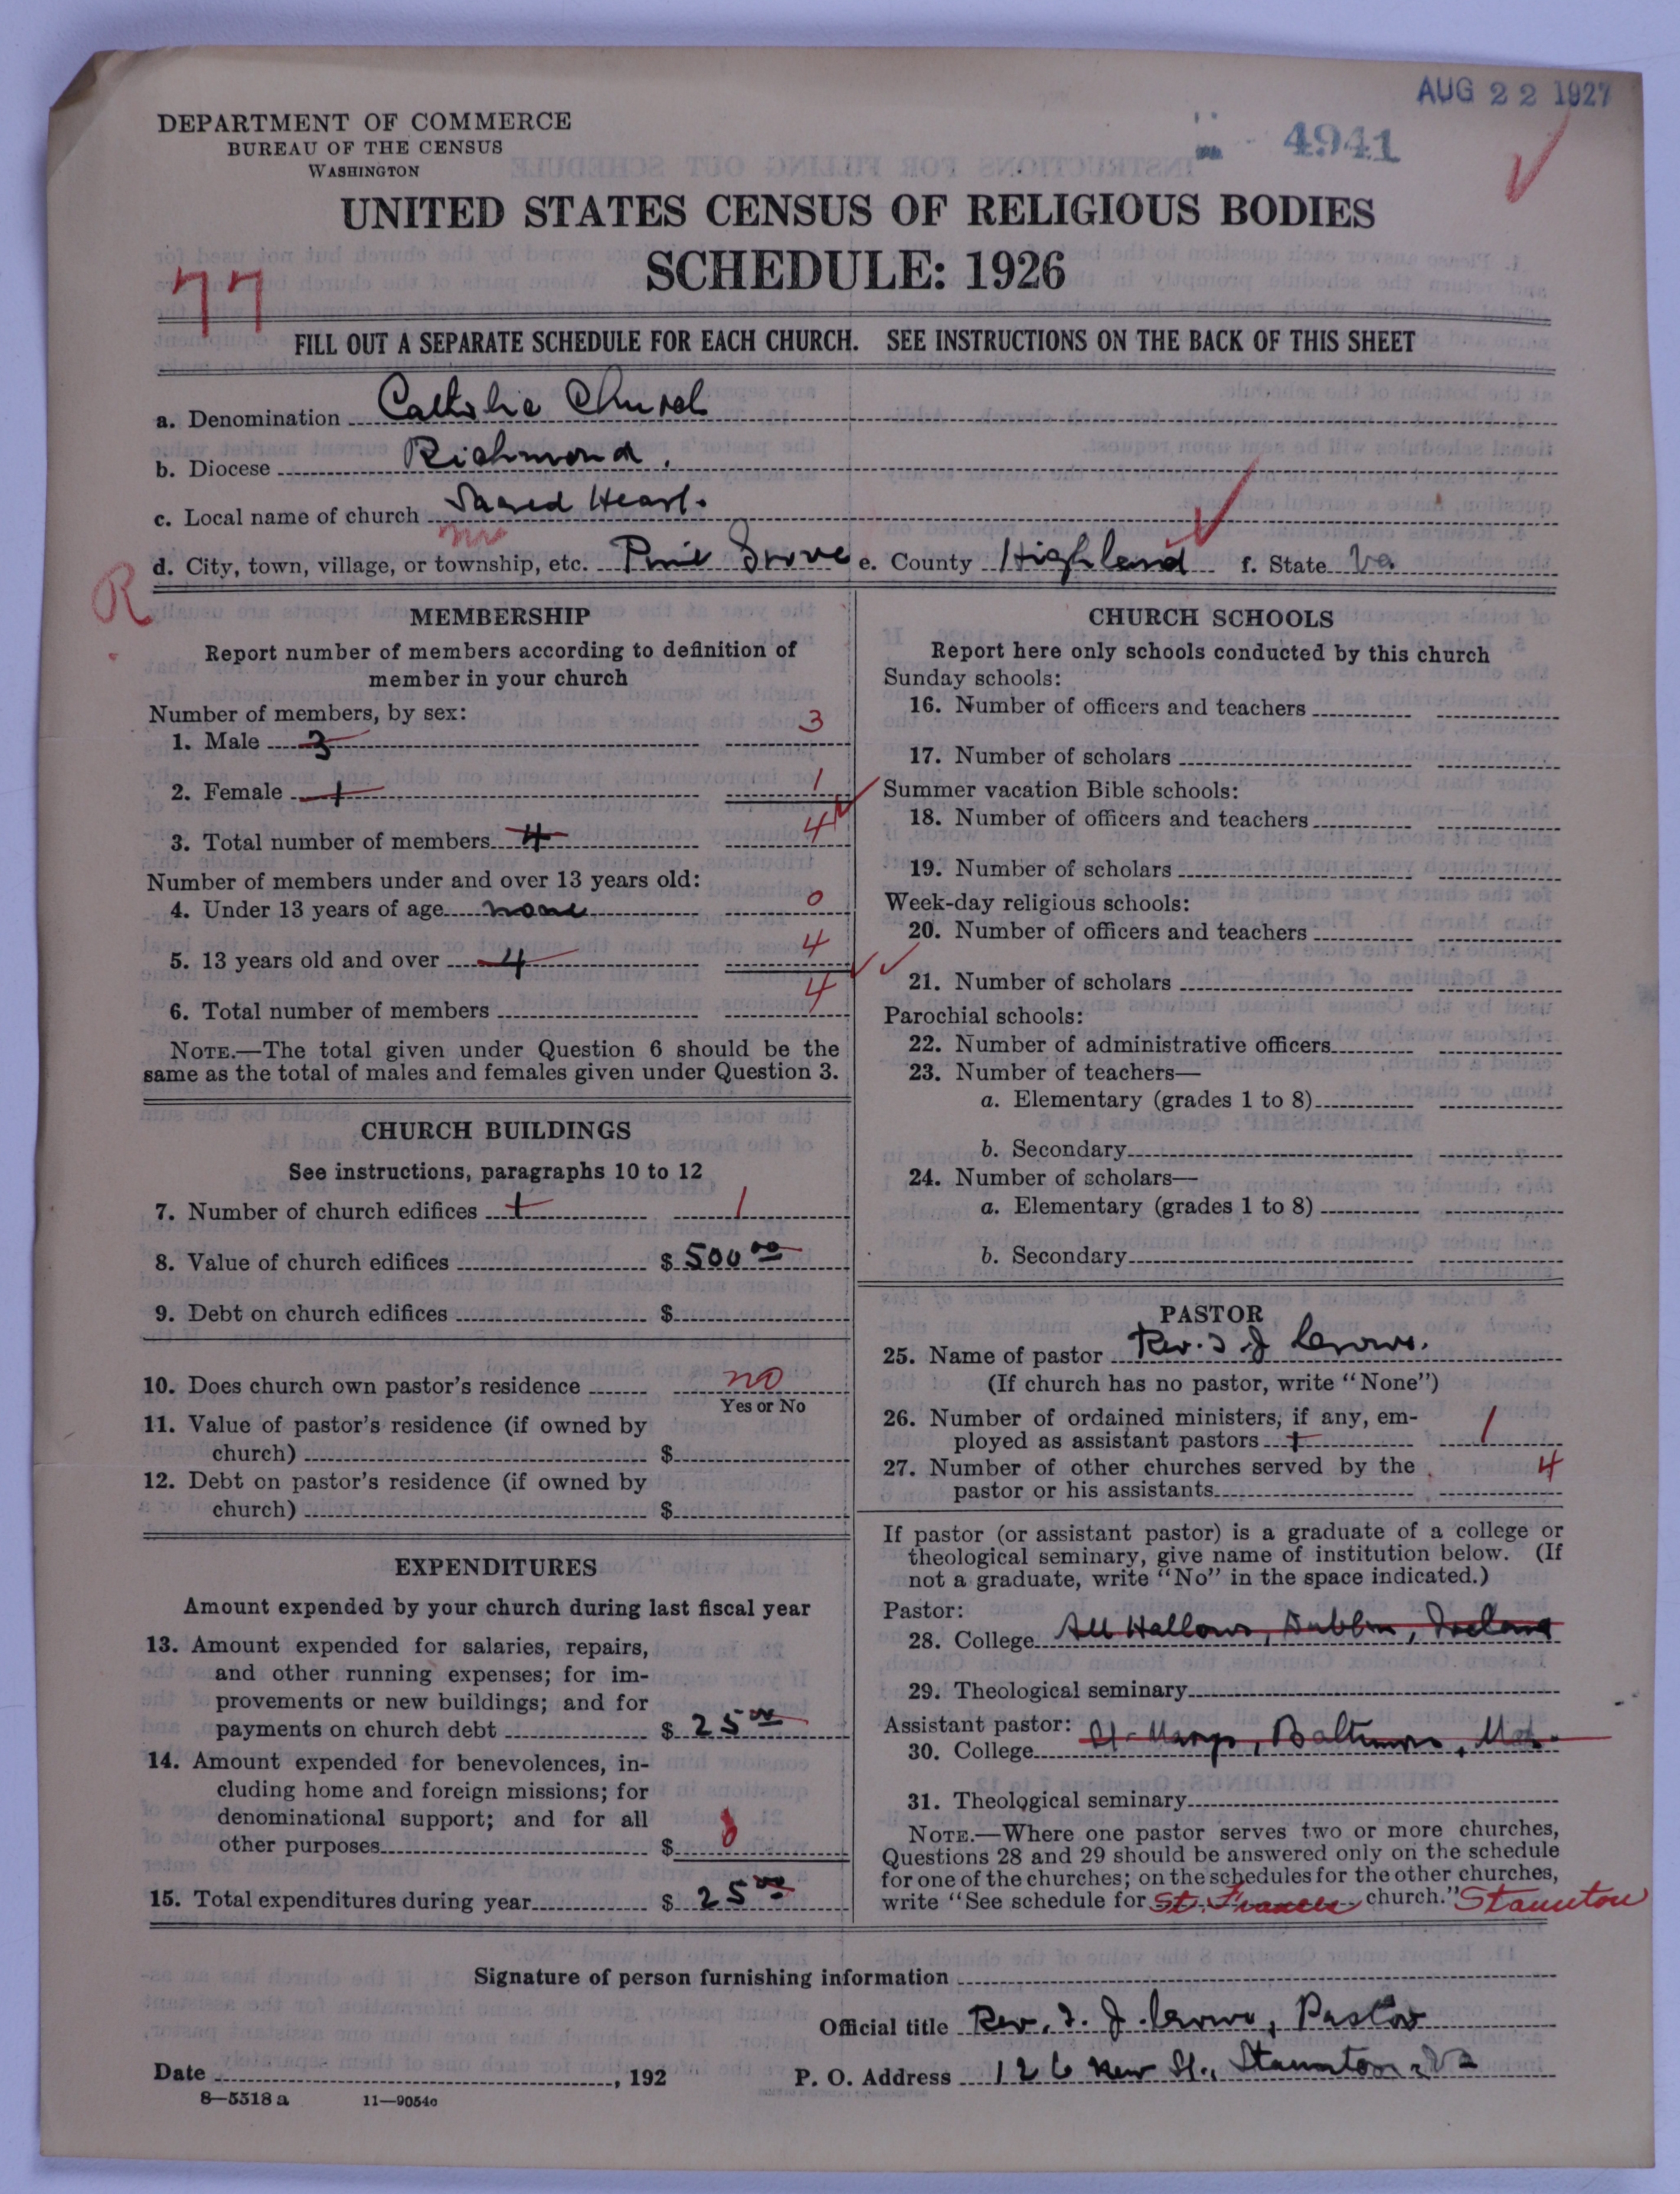 AUG 22 1927
4941
DEPARTMENT OF COMMERCE
BUREAU OF THE CENSUS
WASHINGTON
UNITED STATES CENSUS OF RELIGIOUS BODIES
SCHEDULE: 1926
77
FILL OUT A SEPARATE SCHEDULE FOR EACH CHURCH. SEE INSTRUCTIONS ON THE BACK OF THIS SHEET
a. Denomination Catholic Church
b. Diocese Richmond.
c. Local name of church Sacred Heart.
d. City, town, village, or township, etc. Pine Grove e. County Highland f. State Va
R
MEMBERSHIP
Report number of members according to definition of
member in your church
Number of members, by sex:
1. Male 3 3
2. Female 1 1
3. Total number of members 4 4
Number of members under and over 13 years old:
4. Under 13 years of age none 0
5. 13 years old and over 4 4
6. Total number of members 4
NOTE.—The total given under Question 6 should be the
same as the total of males and females given under Question 3.
CHURCH BUILDINGS
See instructions, paragraphs 10 to 12
7. Number of church edifices 1 1
8. Value of church edifices $ 500 00
9. Debt on church edifices $
10. Does church own pastor's residence no
Yes or No
11. Value of pastor's residence (if owned by
church) $
12. Debt on pastor's residence (if owned by
church) $
EXPENDITURES
Amount expended by your church during last fiscal year
13. Amount expended for salaries, repairs,
and other running expenses; for im-
provements or new buildings; and for
payments on church debt $ 25 00
14. Amount expended for benevolences, in-
cluding home and foreign missions; for
denominational support; and for all
other purposes $ 0
15. Total expenditures during year $ 25 00
CHURCH SCHOOLS
Report here only schools conducted by this church
Sunday schools:
16. Number of officers and teachers
17. Number of scholars
Summer vacation Bible schools:
18. Number of officers and teachers
19. Number of scholars
Week-day religious schools:
20. Number of officers and teachers
21. Number of scholars
Parochial schools:
22. Number of administrative officers
23. Number of teachers—
a. Elementary (grades 1 to 8)
b. Secondary
24. Number of scholars—
a. Elementary (grades 1 to 8)
b. Secondary
PASTOR
25. Name of pastor Rev. T. J.
(If church has no pastor, write "None")
26. Number of ordained ministers, if any, em-
ployed as assistant pastors 1 1
27. Number of other churches served by the
pastor or his assistants 4
If pastor (or assistant pastor) is a graduate of a college or
theological seminary, give name of institution below. (If
not a graduate, write "No" in the space indicated.)
Pastor:
28. College All Hallows, Dublin, Ireland
29. Theological seminary
Assistant pastor:
30. College St. Marys, Baltimore, Md.
31. Theological seminary
NOTE.—Where one pastor serves two or more churches,
Questions 28 and 29 should be answered only on the schedule
for one of the churches; on the schedules for the other churches,
write "See schedule for St. Francis church." Staunton
Signature of person furnishing information
Official title Rev. T. J. Pastor
Date , 192 P. O. Address 126 New St., Staunton, Va
8—5518 a 11—9054c